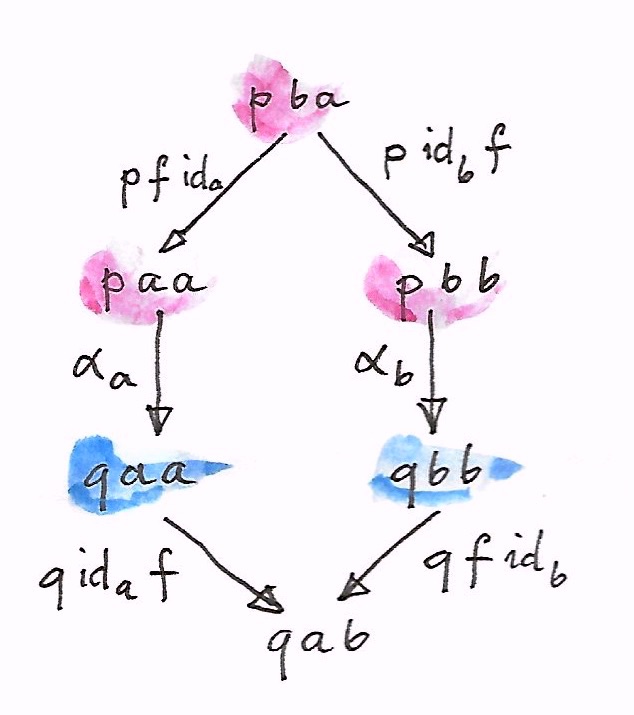 p b a
p f id_a p id_b f
p a a p b b
α_a α_b
q a a q b b
q id_a f q f id_b
q a b